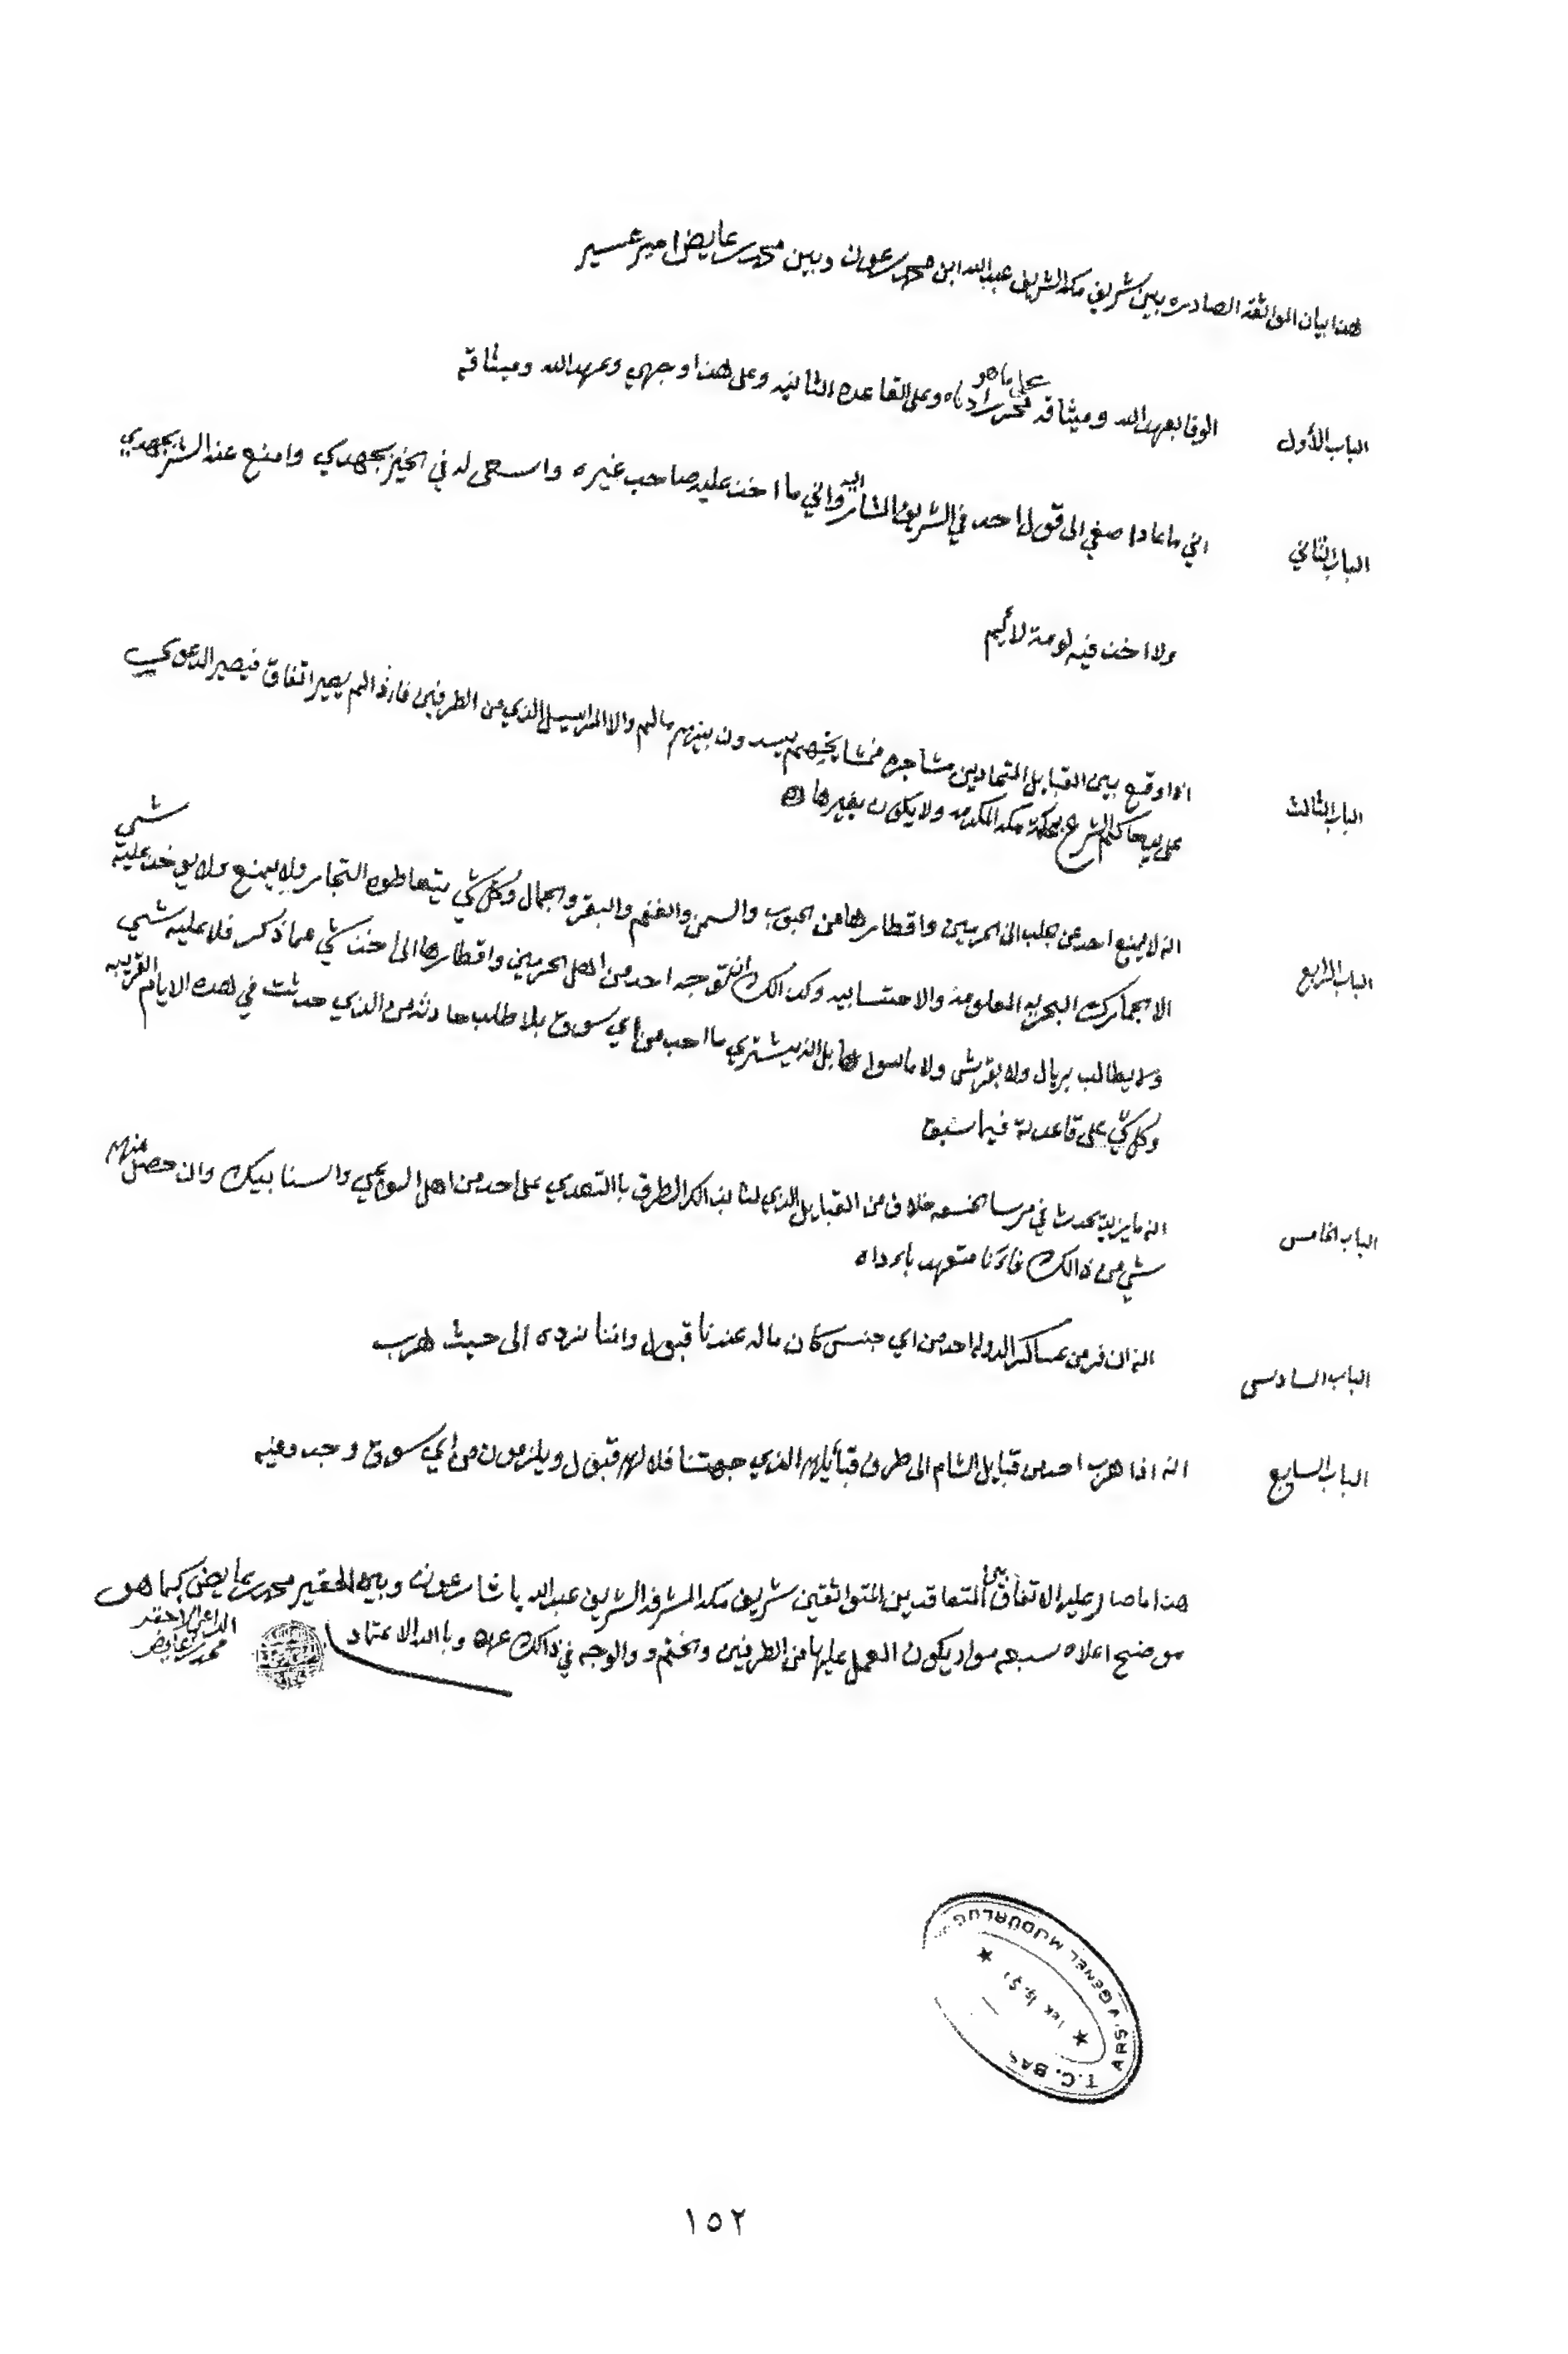 هذا بيان المواثقة الصادره بين شريف مكه الشريف عبدالله ابن محمد بن عون وبين محمد بن عايض امير عسير
الباب الأول
الوفا بعهد الله وميثاقه على ما هو محرر ادناه وعلى القاعده الثانيه وعلى هذا وجهي وعهد الله وميثاقه
الباب الثاني
اني ما عاد اصغي الى قول احد في الشريف المشار اليه واني ما اخذ عليه صاحب غيره واسعى له في الخير بجهدي وامنع عنه الشر بجهدي
ولا اخذ فيه لومة لائيم
الباب الثالث
اذا وقع بين القبايل المتحادين مشاجره فمشايخهم يسدون بينهم مالهم والا المراسيل الذي من الطرفين فاذا لم يصير اتفاق فيصير الدعوى
على يد حاكم الشرع بمكة مكه المكرمه ولا يكون بغيرها
الباب الرابع
انه لا يمنع احد عن جلب الى الحرمين واقطارها من الحبوب والسمن والغنم والبقر والجمال وكل شي يتعاطوه التجار ولا يمنع ولا يوخذ عليه شي
الا الجمارك البحريه المعلومة والاحتسابيه وكذالك ان توجه احد من اهل الحرمين واقطارها الى اخذ شي مما ذكر فلا عليه شي
ولا يطالب بريال ولا بقرش ولا ما سواها بل انه يشتري ما احب من اي سوق بلا طلب حادثه من الذي حدثت في هذه الايام القريبه
وكل شي على قاعدته فيما سبق
الباب الخامس
انه ما يزيد يحدث في مرسا خلاف من القبايل الذي لنا بذالك الطرف باالتعدي على احد من اهل السواعي والسنابيك وان حصل منهم
شي من ذالك فانا متعهد بارداه
الباب السادس
انه ان فر من عساكر الدوله احد من اي جنس كان ماله عندنا قبول واننا نرده الى حيث هرب
الباب السابع
انه اذا هرب احد من قبايل الشام الى طرف قبائلهم الذي جهتنا فلا لهم قبول ويلزمون من اي سوق وجدو فيه
هذا ما صار عليه الاتفاق بين المتعاقدين المتواثقين شريف مكه المشرفه الشريف عبدالله باشا بن عون وبين الحقير محمد بن عايض كما هو
موضح اعلاه سبعه مواد يكون العمل عليها من الطرفين والوجه في ذالك وباالله الاعتماد
الداعي الاحقر
محمد بن عايض
T.C. BAŞ
ARŞ GENEL MÜDÜRLÜĞ
١٥٢